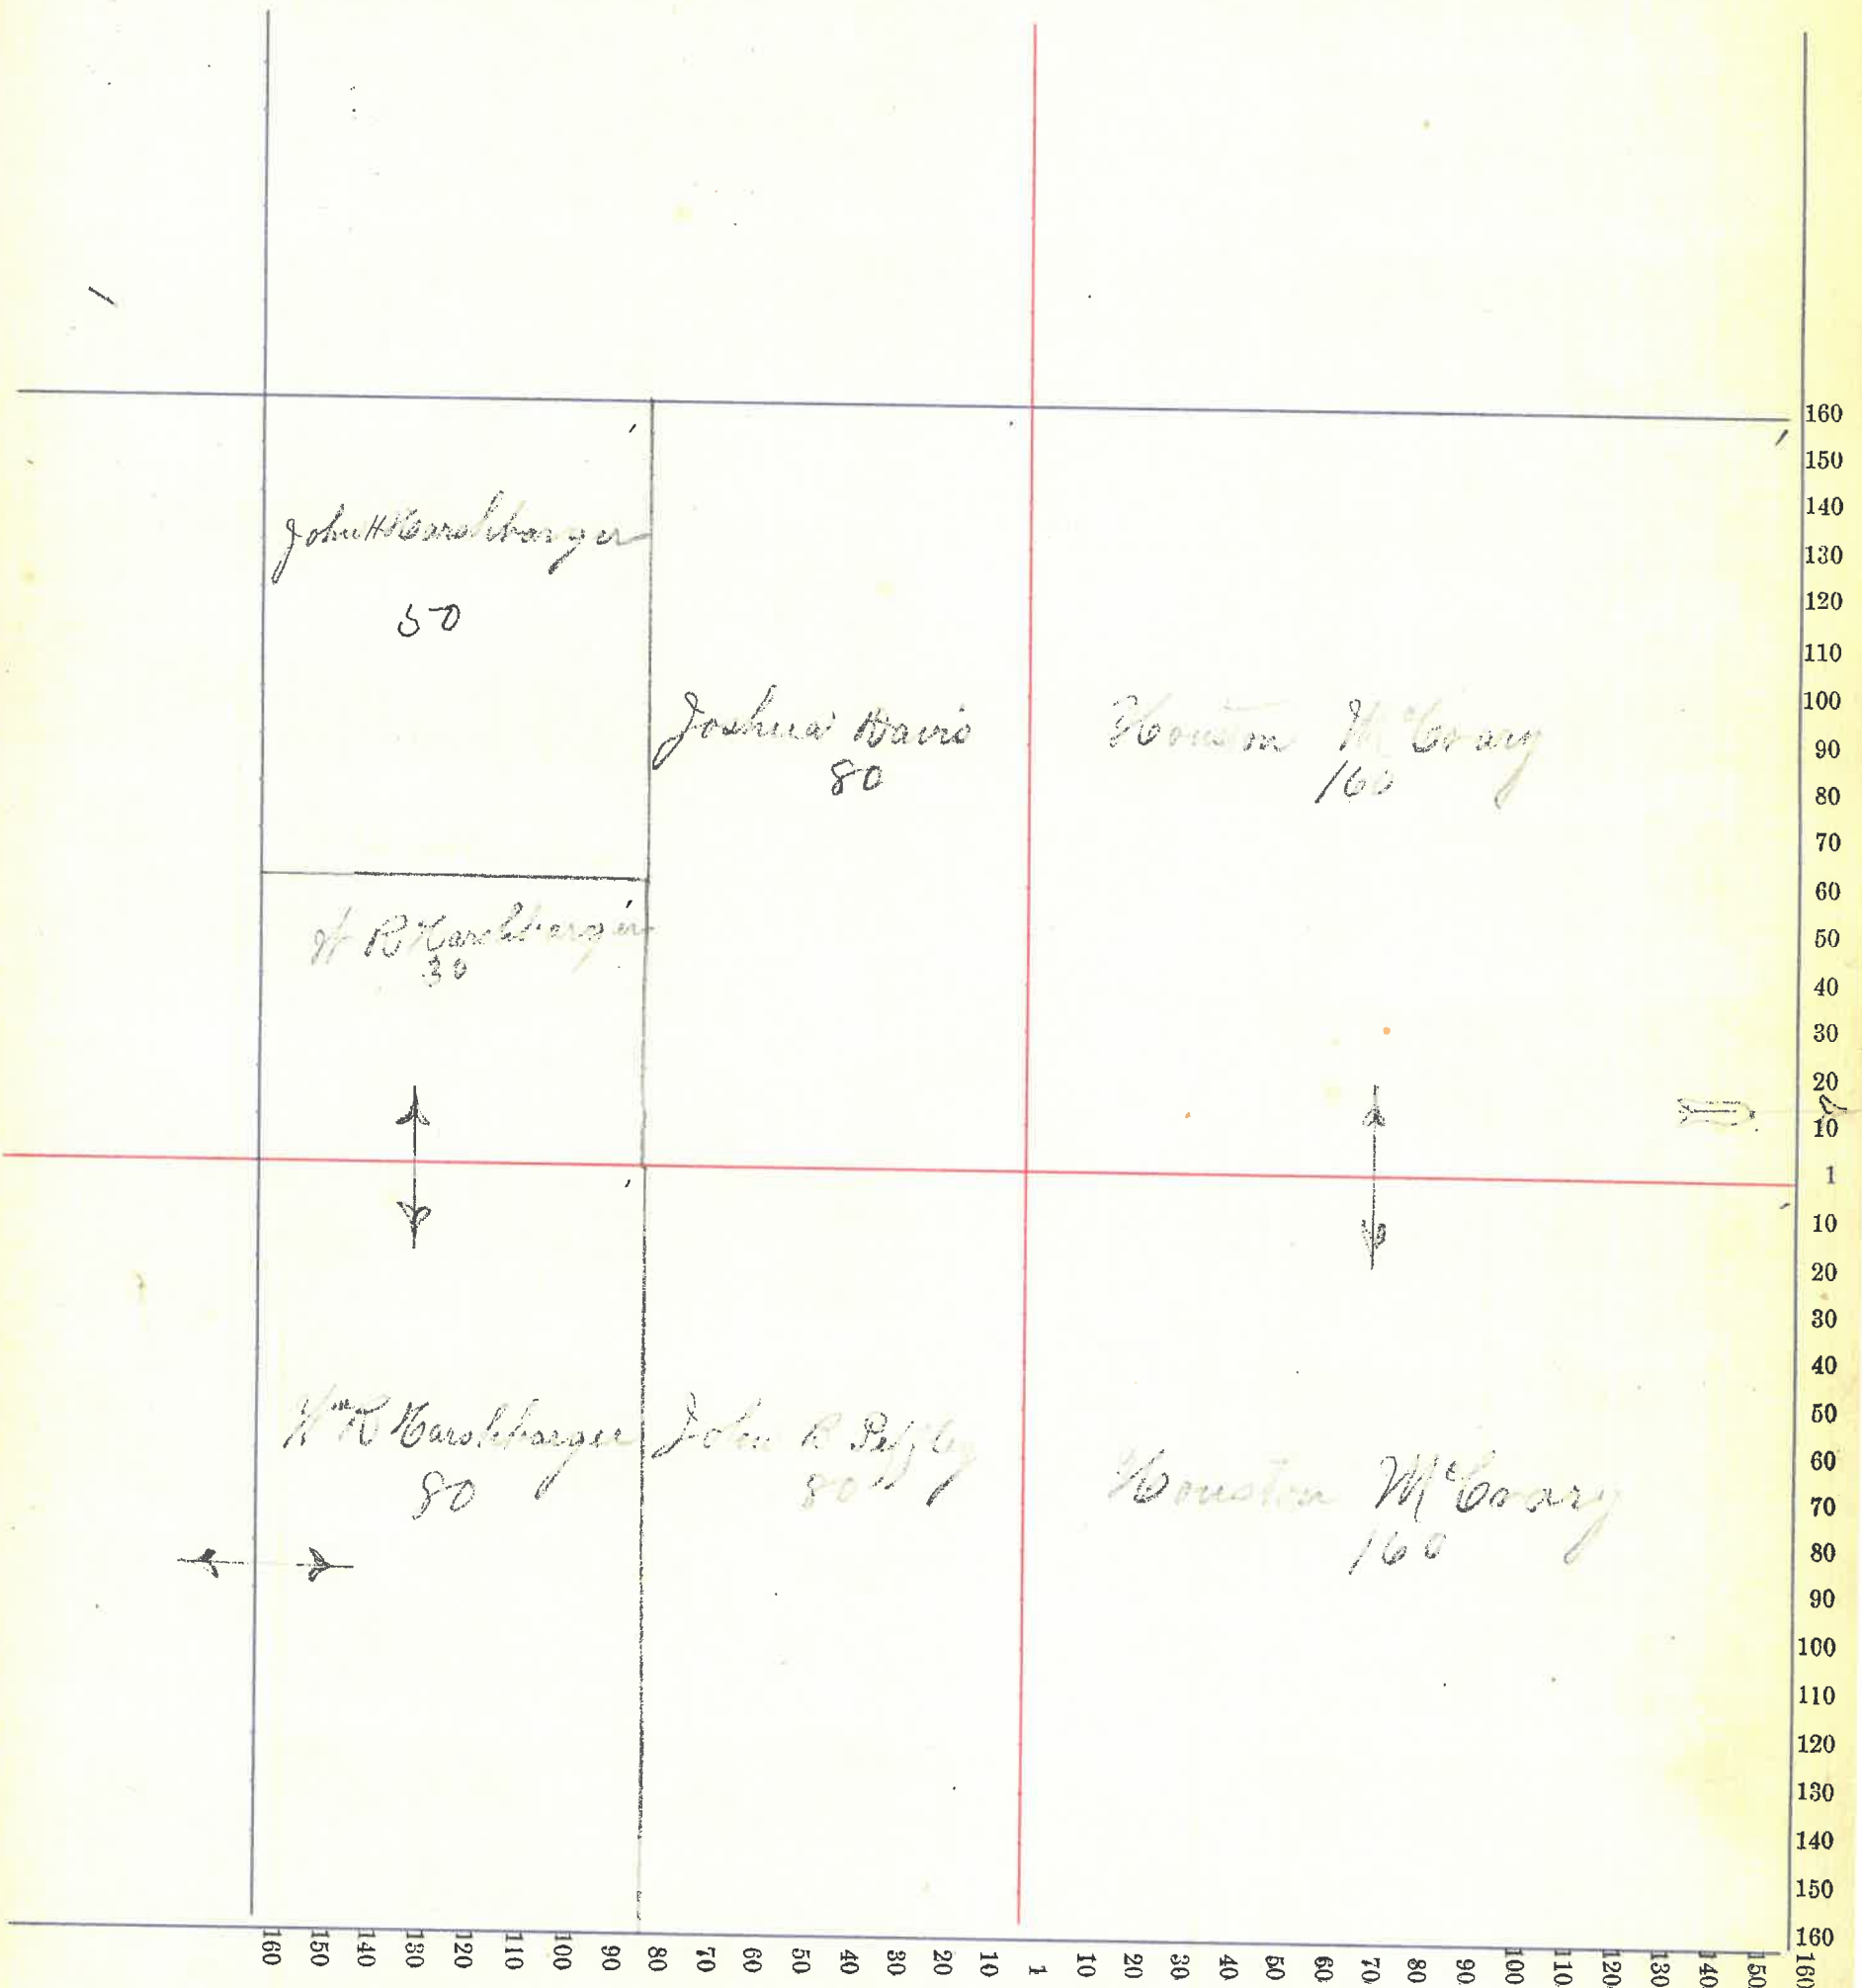 John H Harshbarger
50
Joshua Davis
80
Houston McCrary
160
W R Harshbarger
30
Wm R Harshbarger
80
John R
80
Houston McCrary
160
160
150
140
130
120
110
100
90
80
70
60
50
40
30
20
10
1
10
20
30
40
50
60
70
80
90
100
110
120
130
140
150
160
160 150 140 130 120 110 100 90 80 70 60 50 40 30 20 10 1 10 20 30 40 50 60 70 80 90 100 110 120 130 140 150 160